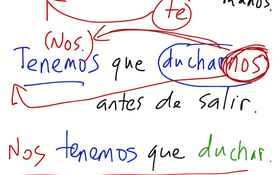 te
(Nos.)
Tenemos que ducharnos
antes de salir.
Nos tenemos que duchar.